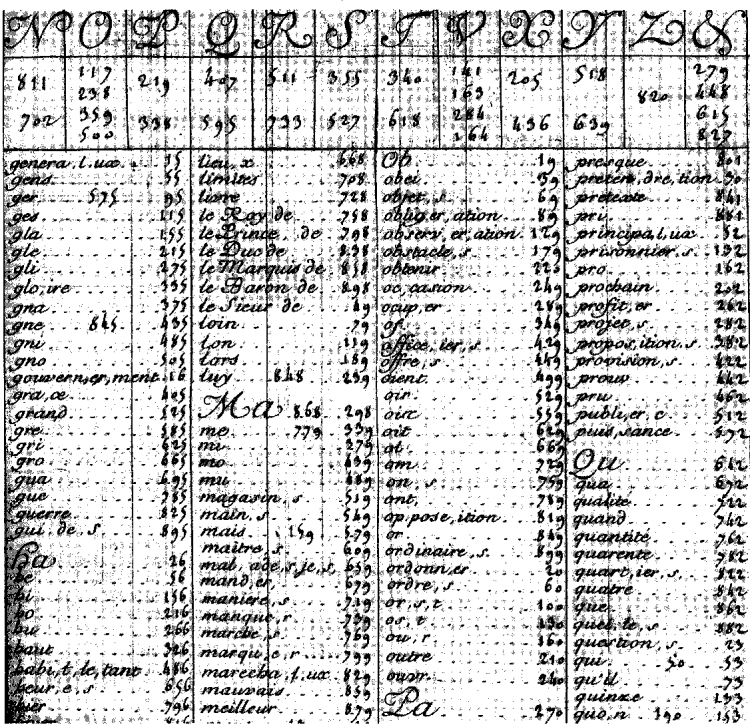 N O P Q R S T V X Y Z &
811 117 219 407 511 355 340 141 205 518 279
238 163 820 448
702 359 338 595 733 527 618 284 436 639 615
500 264 827
genera, l, ux 15
gens 55
ger 575 95
ges 115
gla 155
gle 215
gli 275
glo, ire 335
gna 375
gne 845 435
gni 485
gno 505
gouvern, er, ment 16
gra, ce 405
grand 525
gre 585
gri 625
gro 665
gua 695
gue 785
guerre 825
gui, de, s 895
Ha 26
he 56
hi 156
ho 216
hu 266
haut 326
habi, t, le, tant 486
heur, e, s 656
hier 796
lieu, x 668
limites 708
livre 728
le Roy de 758
le Prince de 798
le Duc de 838
le Marquis de 858
le Baron de 898
le Sieur de 49
loin 79
lon 119
lors 189
luy 848 239
Ma 868 298
me 779 339
mi 279
mo 439
mu 489
magasin, s 519
main, s 549
mais 159 579
maitre, s 609
mal, ade, s, je, s 659
mand, er 699
maniere, s 719
manque, r 739
marche, s 769
marqu, e, r 799
marecha, l, ux 829
mauvais 859
meilleur 879
Ob 19
obei 39
objet, s 69
oblig, er, ation 89
observ, er, ation 129
obstacle, s 179
obtenir 220
oc, casion 249
ocup, er 289
of 349
office, ier, s 429
offre, s 449
oient 499
oir 529
ois 559
oit 629
ol 669
om 729
on, s 759
ont 789
op, pose, ition 819
or 849
ordinaire, s 899
ordonn, er 20
ordre, s 60
or, s, t 100
os, t 130
ou, r 160
outre 210
ouvr 240
Pa 270
presque 801
preten, dre, tion 30
pretexte 841
pri 881
principa, l, ux 52
prisonnier, s 132
pro 162
prochain 202
profit, er 262
projet, s 282
propos, ition, s 382
provision, s 422
prouv 442
pru 462
publi, er, c 512
puis, sance 572
Qu 612
qua 692
qualité 722
quand 742
quantité 762
quarente 782
quart, ier, s 822
quatre 842
que 862
quel, le, s 882
question, s 23
qui 50 53
qu'il 73
quinze 133
quo, n 190 153